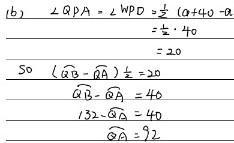 (b) ∠QPA = ∠WPD = ½ (a+40-a
= ½ · 40
= 20
So (Q͡B - Q͡A) ½ = 20
Q͡B - Q͡A = 40
132 - Q͡A = 40
Q͡A = 92